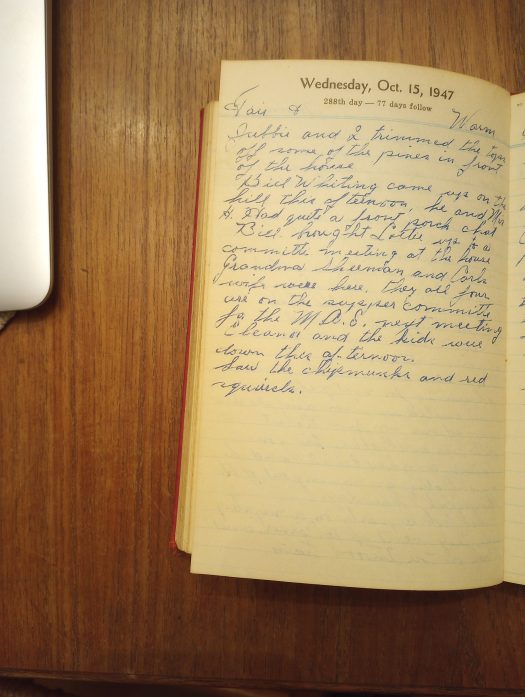 Wednesday, Oct. 15, 1947
288th day — 77 days follow
Fair & Warm
and I trimmed the tops
off some of the pines in front
of the house
Bill Whiting came up on the
hill this afternoon, he and Mrs
H. Had quite a front porch chat
Bill brought Lottie up to a
committe meeting at the house
Grandma Sherman and
wife were here. they all four
are on the supper committe
for the M.A.E. next meeting
and the kids were
down this afternoon.
Saw the chipmunks and red
squirels.